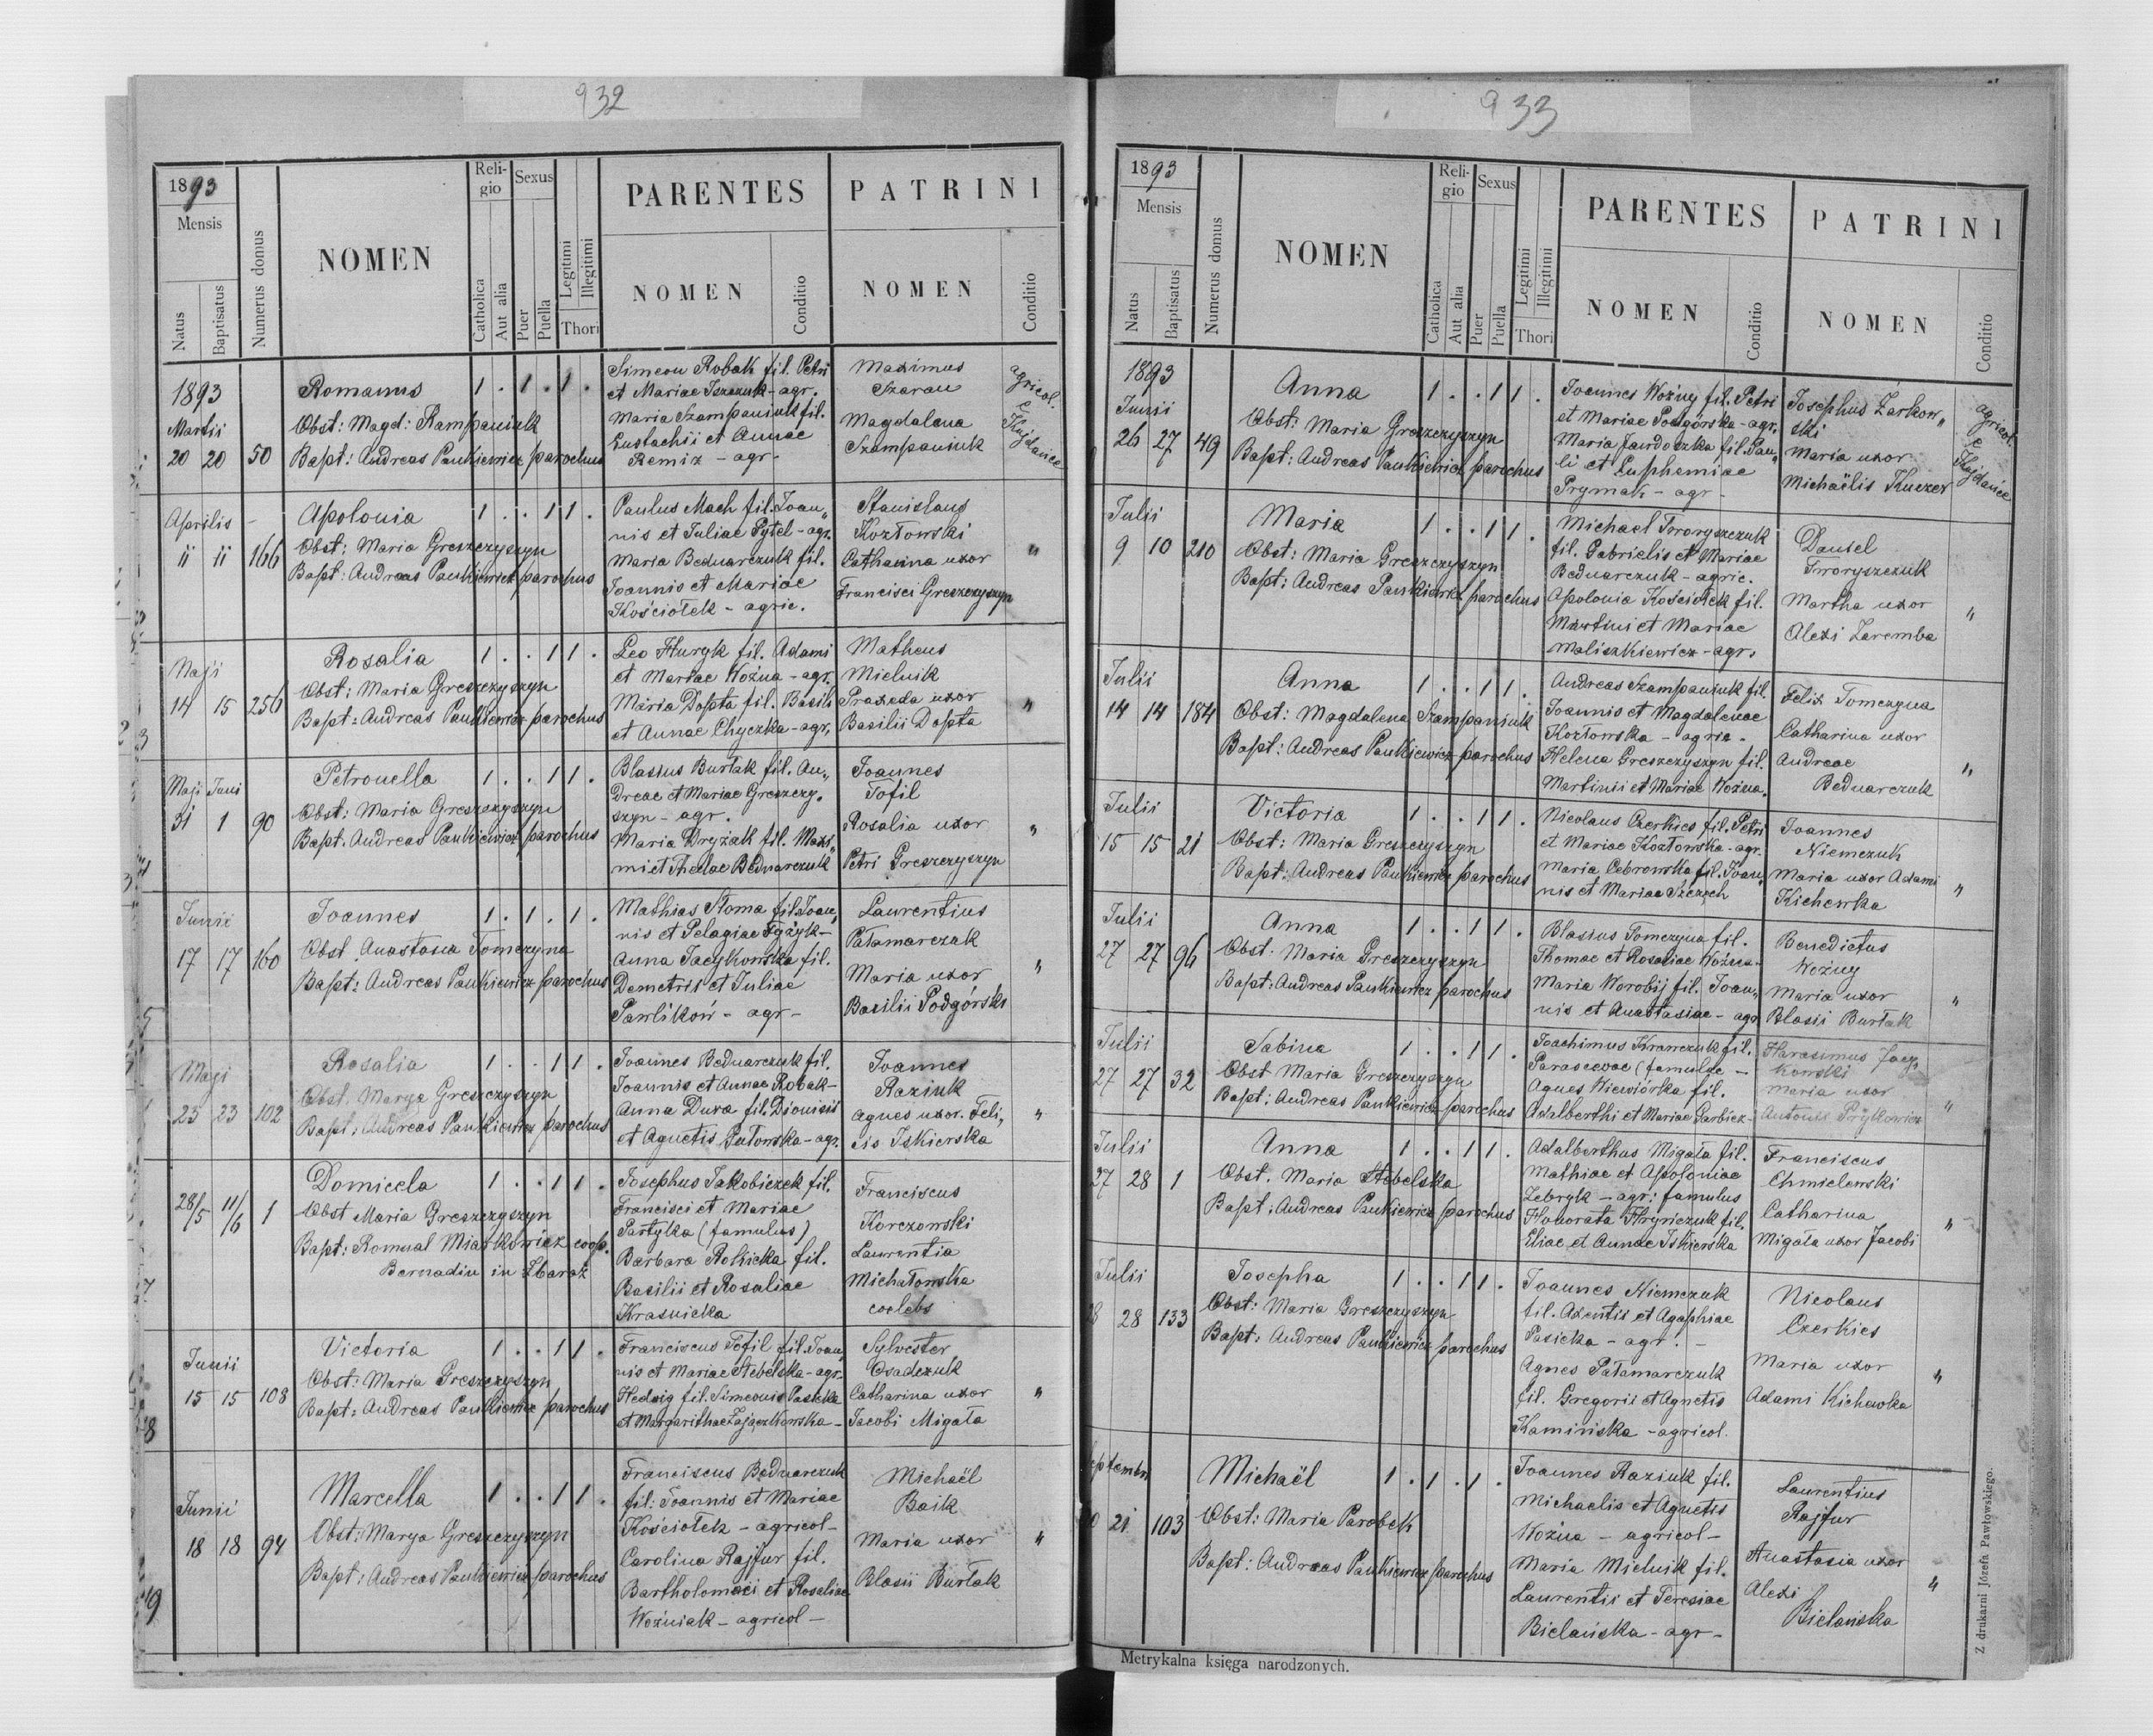 932
1893
Mensis
Natus
Baptisatus
Numerus domus
NOMEN
Reli-
gio
Catholica
Aut alia
Sexus
Puer
Puella
Legitimi
Illegitimi
Thori
PARENTES
NOMEN
Conditio
PATRINI
NOMEN
Conditio
1893
Martii
20 20 50
Romanus
Obst: Magd: Rampaniuk
Bapt: Andreas Pankiewicz parochus
1 . 1 . 1 .
Simeon Robak fil. Petri
et Mariae Iszczuk - agr.
Maria Szampaniuk fil.
Eustachii et Annae
Remiz - agr.
Maximus
Szaran
Magdalena
Szampaniuk
agricol.
e
Kujdańce
Aprilis -
11 11 166
Apolonia
Obst: Maria Greszczyszyn
Bapt: Andreas Pankiewicz parochus
1 . . 1 1 .
Paulus Mach fil. Joan„
nis et Juliae Pytel - agr.
Maria Bednarczuk fil.
Joannis et Mariae
Kościołek - agric.
Stanislaus
Kozłowski
Catharina uxor
Francisci Greszczyszyn
"
Maji
14 15 256
Rosalia
Obst: Maria Greszczyszyn
Bapt: Andreas Pankiewicz parochus
1 . . 1 1 .
Leo Huryk fil. Adami
et Mariae Woźna - agr.
Maria Dopta fil. Basili
et Annae Chyczka - agr.
Matheus
Mielnik
Praxeda uxor
Basilii Dopta
"
Maji Juni
31 1 90
Petronella
Obst: Maria Greszczyszyn
Bapt. Andreas Pankiewicz parochus
1 . . 1 1 .
Blasius Burlak fil. An„
dreae et Mariae Greszczy„
szyn - agr.
Maria Dryżak fil. Maxi„
mi et Theclae Bednarczuk
Joannes
Tofil
Rosalia uxor
Petri Greszczyszyn
"
Junii
17 17 160
Joannes
Obst. Anastasia Tomczyna
Bapt: Andreas Pankiewicz parochus
1 . 1 . 1 .
Mathias Słoma fil. Joan„
nis et Pelagiae
Anna Jacykowska fil.
Demetrii et Juliae
Pawlików - agr -
Laurentius
Pałamarczuk
Maria uxor
Basilii Podgórski
"
Maji
23 23 102
Rosalia
Obst. Marya Greszczyszyn
Bapt: Andreas Pankiewicz parochus
1 . . 1 1 .
Joannes Bednarczuk fil.
Joannis et Annae Robak -
Anna Dura fil. Dionisii
et Agnetis Gutowska - agr.
Joannes
Raziuk
Agnes uxor. Feli„
cis Iskierska
"
28/5 11/6 1
Domicela
Obst Maria Greszczyszyn
Bapt: Romual Miarkowicz coop.
Bernadin in Zbaraż
1 . . 1 1 .
Josephus Jakobiczek fil.
Francisci et Mariae
Partyka (famulus)
Barbara Rolicka fil.
Basilii et Rosaliae
Krasnicka
Franciscus
Korczowski
Laurentia
Michałowska
coelebs
Junii
15 15 108
Victoria
Obst: Maria Greszczyszyn
Bapt: Andreas Pankiewicz parochus
1 . . 1 1 .
Franciscus Tofil fil. Joan„
nis et Mariae Stebelska - agr.
Hedvig fil. Simeonis Pasicka
et Margarithae Zajączkowska -
Sylvester
Osadczuk
Catharina uxor
Jacobi Migała
"
Junii
18 18 94
Marcella
Obst: Marya Greszczyszyn
Bapt: Andreas Pankiewicz parochus
1 . . 1 1 .
Franciscus Bednarczuk
fil: Joannis et Mariae
Kościołek - agricol -
Carolina Rajfur fil.
Bartholomaei et Rosaliae
Woźniak - agricol -
Michaël
Baik
Maria uxor
Blasii Burlak
"
933
1893
Mensis
Natus
Baptisatus
Numerus domus
NOMEN
Reli-
gio
Catholica
Aut alia
Sexus
Puer
Puella
Legitimi
Illegitimi
Thori
PARENTES
NOMEN
Conditio
PATRINI
NOMEN
Conditio
1893
Junii
26 27 49
Anna
Obst: Maria Greszczyszyn
Bapt: Andreas Pankiewicz parochus
1 . . 1 1 .
Joannes Woźny fil. Petri
et Mariae Podgórska - agr.
Maria Jawdoszka fil. Pau„
li et Euphemiae
Prymak - agr -
Josephus Żarkow„
ski
Maria uxor
Michaëlis Kuczer
agricol.
e
Kujdańce
Julii
9 10 210
Maria
Obst: Maria Greszczyszyn
Bapt: Andreas Pankiewicz parochus
1 . . 1 1 .
Michael Iworyszczuk
fil. Gabrielis et Mariae
Bednarczuk - agric.
Apolonia Kościołek fil.
Martini et Mariae
Maliszkiewicz - agr.
Daniel
Iworyszczuk
Martha uxor
Alexi Zaremba
"
Julii
14 14 184
Anna
Obst: Magdalena Szampaniuk
Bapt: Andreas Pankiewicz parochus
1 . . 1 1 .
Andreas Szampaniuk fil.
Joannis et Magdalenae
Kozłowska - agric.
Helena Greszczyszyn fil.
Martinii et Mariae Woźna.
Felix Tomczyna
Catharina uxor
Andreae
Bednarczuk
"
Julii
15 15 21
Victoria
Obst: Maria Greszczyszyn
Bapt: Andreas Pankiewicz parochus
1 . . 1 1 .
Nicolaus Czerkies fil. Petri
et Mariae Kozłowska - agr.
Maria Cebrowska fil. Joan„
nis et Mariae Szczęch
Joannes
Niemczuk
Maria uxor Adami
Kichewka
"
Julii
27 27 96
Anna
Obst. Maria Greszczyszyn
Bapt: Andreas Pankiewicz parochus
1 . . 1 1 .
Blasius Tomczyna fil.
Thomae et Rosaliae Woźna -
Maria Worobij fil. Joan„
nis et Anastasiae - agr
Benedictus
Woźny
Maria uxor
Blasii Burlak
"
Julii
27 27 32
Sabina
Obst Maria Greszczyszyn
Bapt: Andreas Pankiewicz parochus
1 . . 1 1 .
Joachimus Krawczuk fil.
Parascevae (famulae -
Agnes Wiewiórka fil.
Adalberthi et Mariae Garbicz -
Harasimus Jacy„
kowski
Maria uxor
Antonii
"
Julii
27 28 1
Anna
Obst. Maria Stebelska
Bapt: Andreas Pankiewicz parochus
1 . . 1 1 .
Adalberthus Migała fil.
Mathiae et Apoloniae
Zebryk - agr: famulus
Honorata Hryńczuk fil.
Eliae et Annae Iskierska
Franciscus
Chmielewski
Catharina
Migała uxor Jacobi
"
Julii
28 28 133
Josepha
Obst: Maria Greszczyszyn
Bapt: Andreas Pankiewicz parochus
1 . . 1 1 .
Joannes Niemczuk
fil. Axentii et Agaphiae
Pasicka - agr. -
Agnes Pałamarczuk
fil. Gregorii et Agnetis
Kamińska - agricol.
Nicolaus
Czerkies
Maria uxor
Adami Kichewka
"
eptembr.
0 21 103
Michaël
Obst: Maria Parobek
Bapt: Andreas Pankiewicz parochus
1 . 1 . 1 .
Joannes Raziuk fil.
Michaelis et Agnetis
Woźna - agricol -
Maria Mielnik fil.
Laurentii et Teresiae
Bielańska - agr -
Laurentius
Rajfur
Anastasia uxor
Alexi
Bielańska
"
Metrykalna księga narodzonych.
Z drukarni Józefa Pawłowskiego.